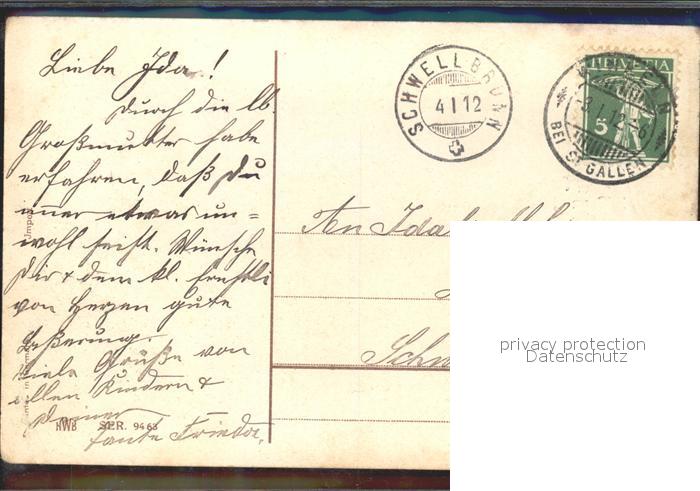 Liebe Ida!
Durch die lb.
Großmutter habe
erfahren, daß Du
immer etwas un=
wohl seist. Wünsche
Dir & dem kl. Ernstli
von Herzen gute
Beßerung.
Viele Grüße von
allen Kindern &
Deiner
Tante Frieda.
HWB SER. 9463
SCHWELLBRUNN
4 I 12
HELVETIA
5
BEI ST GALLEN
An Ida
privacy protection
Datenschutz